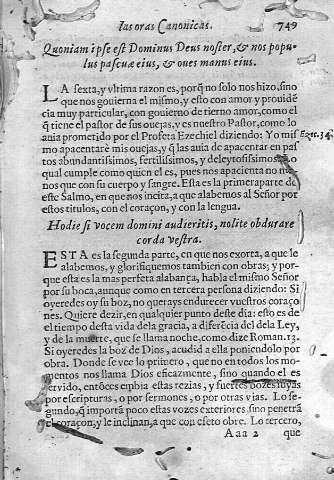 las oras Canonicas. 749
Quoniam ipse est Dominus Deus noster, & nos popu-
lus pascuæ eius, & oues manus eius.
LA sexta, y vltima razon es, porq̃ no solo nos hizo, sino
que nos gouierna el mismo, y esto con amor y prouidē
cia muy particular, con gouierno de tierno amor, como el
q̃ tiene el pastor de sus ouejas, y es nuestro Pastor, como lo
auia prometido por el Profeta Ezechiel diziendo: Yo mis
mo apacentarè mis ouejas, y q̃ las auia de apacentar en pas
tos abundantissimos, fertilissimos, y deleytosissimos. Lo
qual cumple como quien el es, pues nos apacienta no me
nos que con su cuerpo y sangre. Esta es la primera parte de
este Salmo, en que nos incita, a que alabemos al Señor por
estos titulos, con el coraçon, y con la lengua.
Ezec. 34.
Hodie si vocem domini audieritis, nolite obdurare
corda vestra.
ESTA es la segunda parte, en que nos exorta, a que le
alabemos, y glorifiquemos tambien con obras; y por-
que esta es la mas perfeta alabança, habla el mismo Señor
por su boca, aunque como en tercera persona diziendo: Si
oyeredes oy su boz, no querays endurecer vuestros coraço
nes. Quiere dezir, en qualquier punto deste dia: esto es de
el tiempo desta vida de la gracia, a diferēcia del de la Ley,
y de la muerte, que se llama noche, como dize Roman. 13.
Si oyeredes la boz de Dios, acudid a ella poniendolo por
obra. Donde se vee lo primero, que no en todos los mo-
mentos nos llama Dios eficazmente, sino quando el es
seruido, entōces embia estas rezias, y fuertes bozes suyas
por escripturas, o por sermones, o por otras vias. Lo se-
gundo, q̃ importā poco estas vozes exteriores sino penetrā
el coraçon, y le inclinan, a que con efeto obre. Lo tercero,
Aaa 2 que